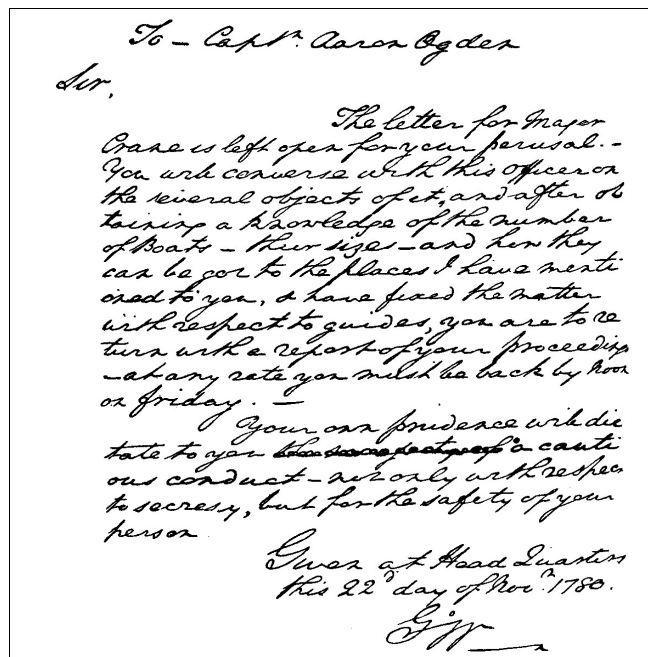 To — Captn. Aaron Ogden
Sir,
The letter for Major
Crane is left open for your perusal. —
You will converse with this officer on
the several objects of it, and after ob
taining a knowledge of the number
of Boats — their sizes — and how they
can be got to the places I have menti
oned to you, & have fixed the matter
with respect to guides, you are to re
turn with a report of your proceedings
— at any rate you must be back by Noon
on friday. —
Your own prudence will dic
tate to you a cauti
ous conduct — not only with respect
to secresy, but for the safety of your
person
Given at Head Quarters
this 22d day of Novr. 1780.